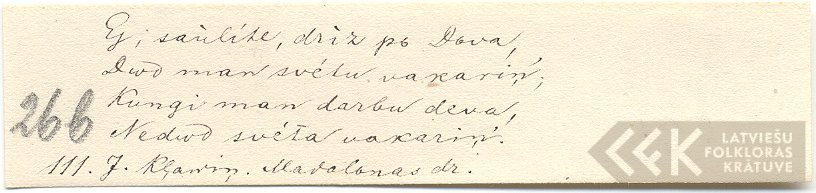 Ej, saulīte, drīz pə Dəva,
Dwd man svētu vakariņ';
Kungi man darbu deva,
Nedwd svēta vakariņ'.
266
111. J. Kļawiņ. Madalonas dr.
LATVIEŠU
FOLKLORAS
KRĀTUVE